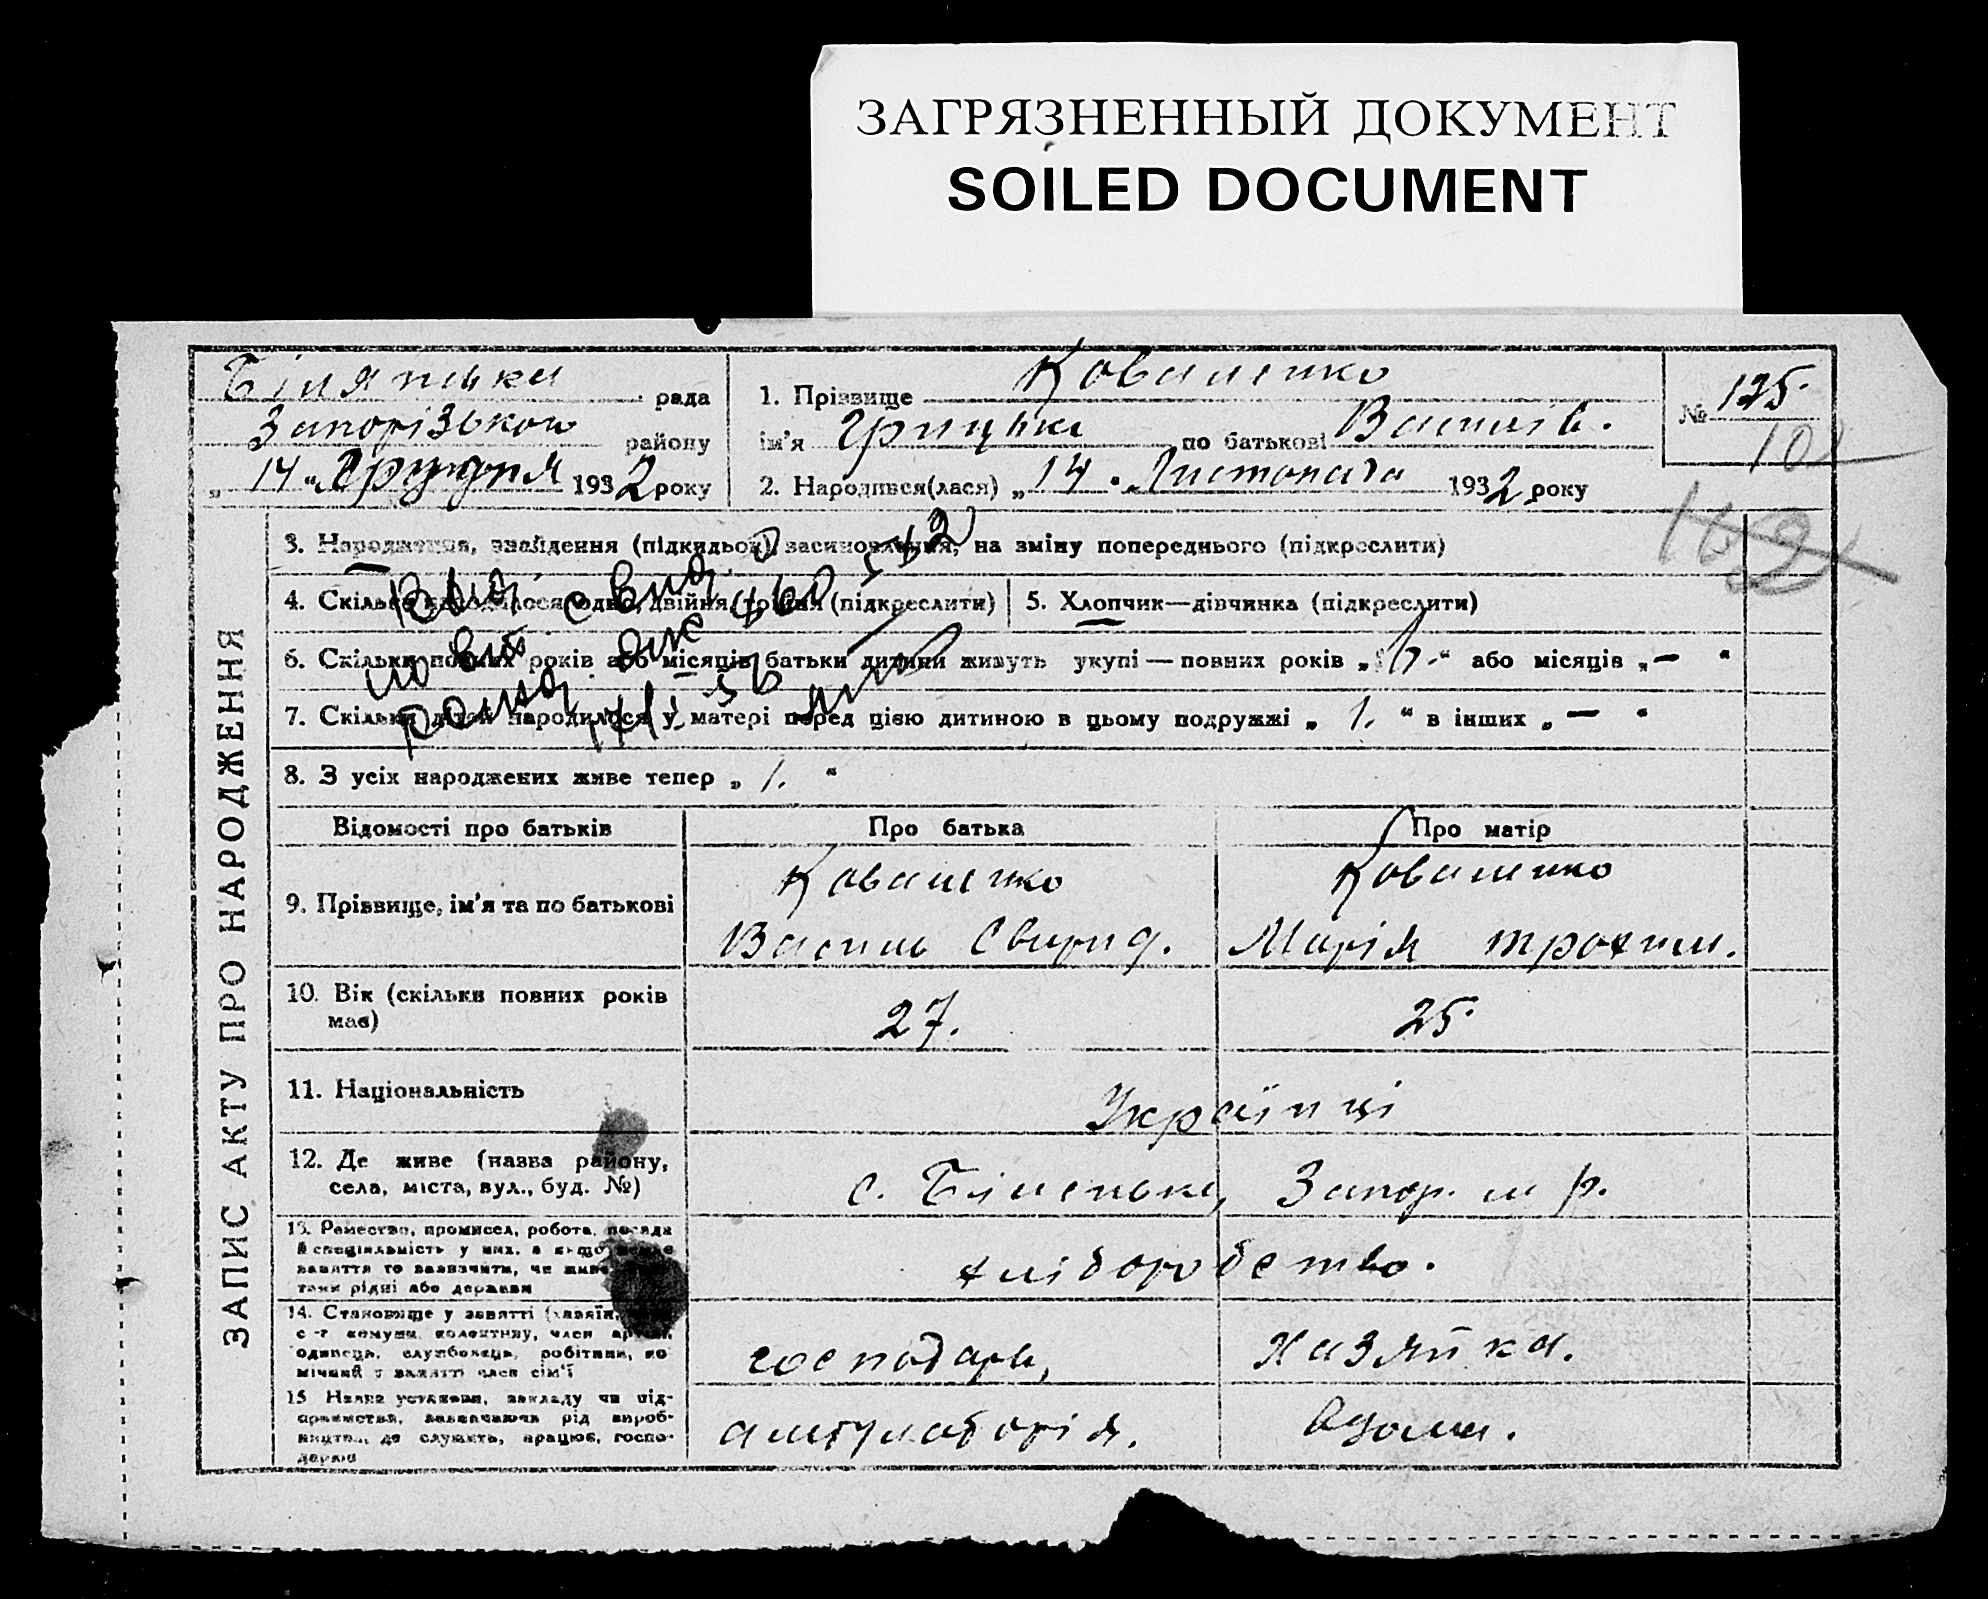 ЗАГРЯЗНЕННЫЙ ДОКУМЕНТ
SOILED DOCUMENT
рада
Запорізького району
„14“ Грудня 1932 року
1. Прізвище Коваленко
ім'я Грицько по батькові Василів.
2. Народився(лася) „14“ Листопада 1932 року
№ 125.
102
ЗАПИС АКТУ ПРО НАРОДЖЕННЯ
3. Народження, знайдення (підкидьок), засиновлення, на зміну попереднього (підкреслити)
4. Скільки народилося: одно, двійня, трійня (підкреслити)
5. Хлопчик—дівчинка (підкреслити)
6. Скільки повних років або місяців батьки дитини живуть укупі — повних років або місяців „—“
7. Скільки дітей народилося у матері перед цією дитиною в цьому подружжі „1.“ в інших „—“
8. З усіх народжених живе тепер „1.“
Відомості про батьків
Про батька
Про матір
9. Прізвище, ім'я та по батькові
Коваленко
Василь Свирид.
Коваленко
Марія Трохим.
10. Вік (скільки повних років має)
27.
25.
11. Національність
Українці
12. Де живе (назва району, села, міста, вул., буд. №)
с. Біленьке, Запор. р.
13. Ремество, промисел, робота, посада
й спеціяльність у них, а якщо немає
заняття то зазначити, чи
рідні або держава
хліборобство.
14. Становище у занятті (хазяїн,
с.-г. комуни, колективу, член артілі,
одинець, службовець, робітник, по-
мічний у занятті член сім'ї
господарь,
хазяйка.
15 Назва установи, закладу чи під-
приємства, зазначаючи рід вироб-
ництва, де служить, працює, госпо-
дарює
амбулаторія.
вдома.